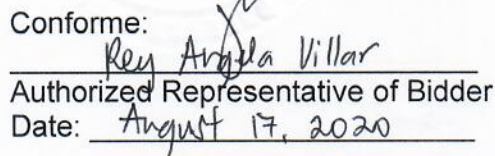 Conforme:
Rey Angela Villar
Authorized Representative of Bidder
Date: August 17, 2020